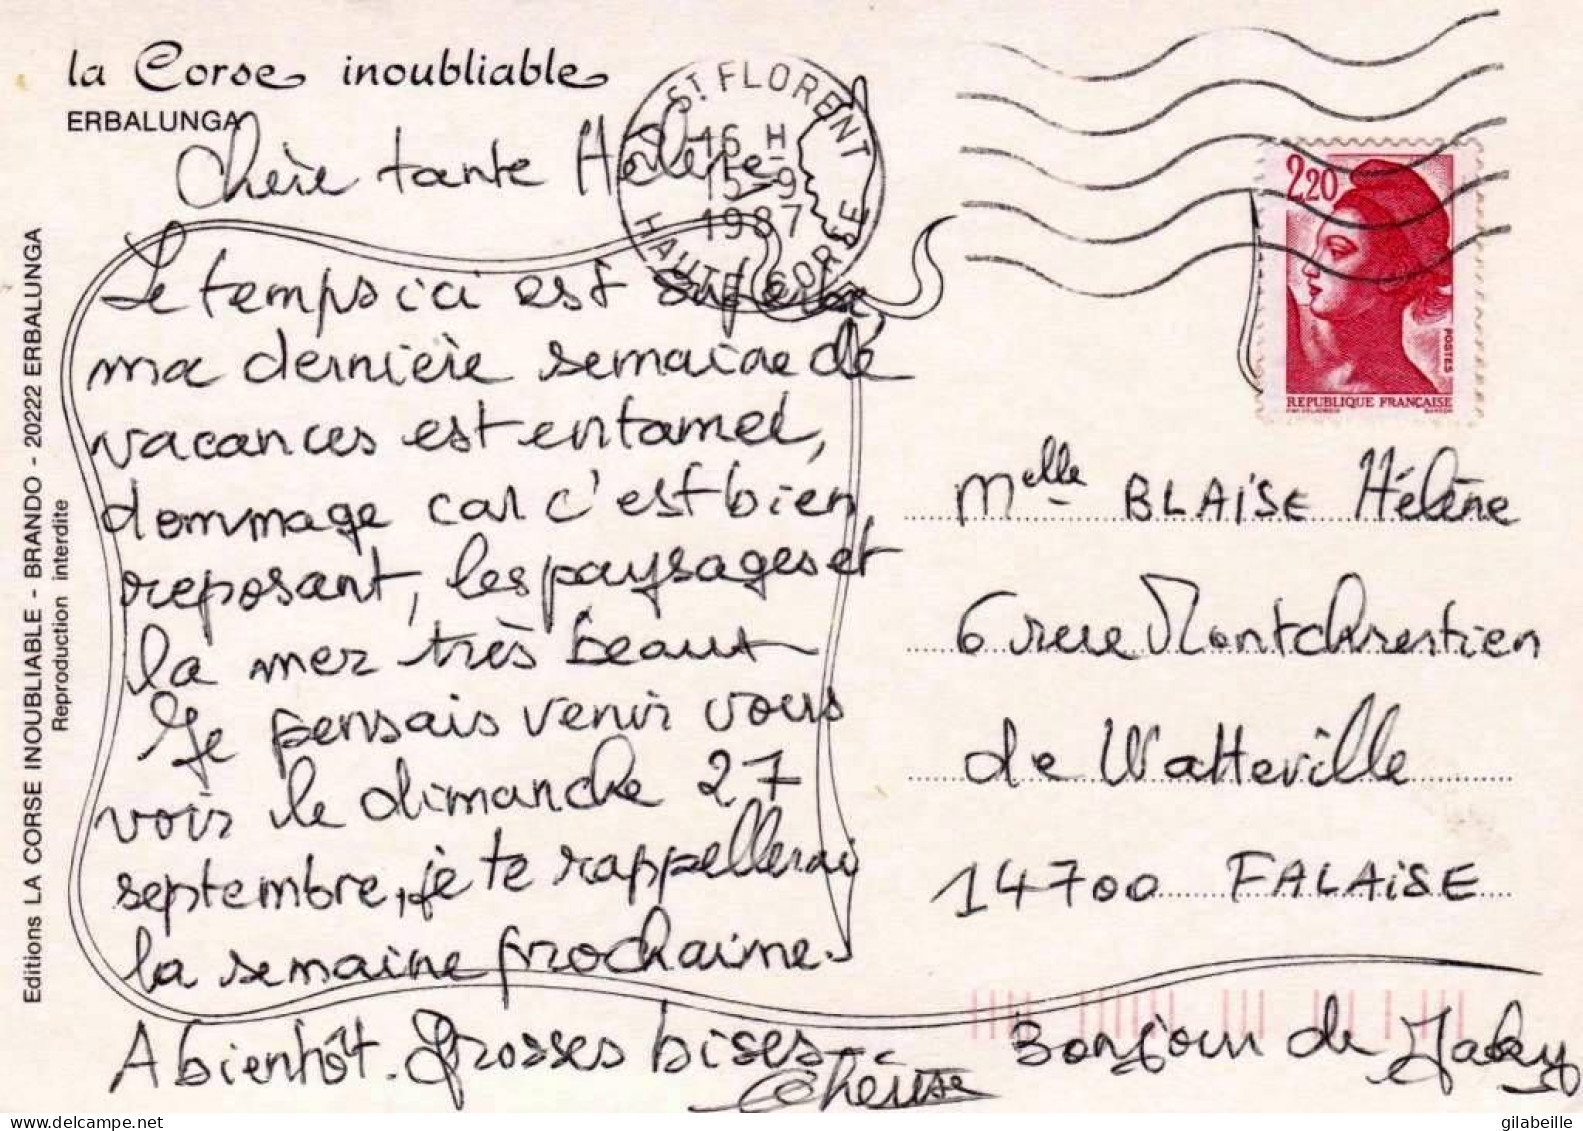 la Corse inoubliable
ERBALUNGA
Chère tante Hélène
Le temps ici est superbe,
ma dernière semaine de
vacances est entamée,
dommage car c'est bien
reposant, les paysages et
la mer très beaux
Je pensais venir vous
voir le dimanche 27
septembre, je te rappellerai
la semaine prochaine.
A bientôt. Grosses bises
Bonjour de Jacky
ST FLORENT
16 H
15-9
1987
HAUTE CORSE
2,20
POSTES
REPUBLIQUE FRANÇAISE
Melle BLAISE Hélène
6 rue Montchrestien
de Watteville
14700 FALAISE
Editions LA CORSE INOUBLIABLE - BRANDO - 20222 ERBALUNGA
Reproduction interdite
gilabeille